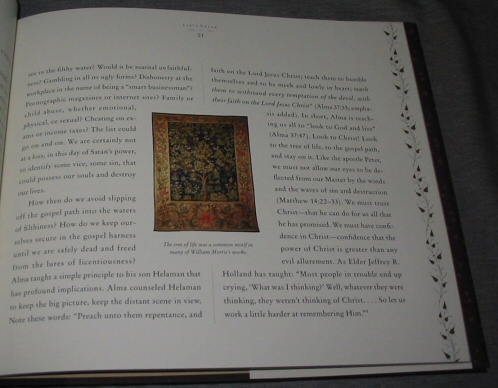 21
sue in the filthy water? Would it be marital unfaithful-
ness? Gambling in all its ugly forms? Dishonesty at the
workplace in the name of being a "smart businessman"?
Pornographic magazines or internet sites? Family or
child abuse, whether emotional,
physical, or sexual? Cheating on ex-
ams or income taxes? The list could
go on and on. We are certainly not
at a loss, in this day of Satan's power,
to identify some vice, some sin, that
could possess our souls and destroy
our lives.
How then do we avoid slipping
off the gospel path into the waters
of filthiness? How do we keep our-
selves secure in the gospel harness
until we are safely dead and freed
from the lures of licentiousness?
Alma taught a simple principle to his son Helaman that
has profound implications. Alma counseled Helaman
to keep the big picture, keep the distant scene in view.
Note these words: "Preach unto them repentance, and
The tree of life was a common motif in
many of William Morris's works.
faith on the Lord Jesus Christ; teach them to humble
themselves and to be meek and lowly in heart; teach
them to withstand every temptation of the devil, with
their faith on the Lord Jesus Christ" (Alma 37:33, empha-
sis added). In short, Alma is teach-
ing us all to "look to God and live"
(Alma 37:47). Look to Christ! Look
to the tree of life, to the gospel path,
and stay on it. Like the apostle Peter,
we must not allow our eyes to be de-
flected from our Master by the winds
and the waves of sin and destruction
(Matthew 14:22–33). We must trust
Christ—that he can do for us all that
he has promised. We must have confi-
dence in Christ—confidence that the
power of Christ is greater than any
evil allurement. As Elder Jeffrey R.
Holland has taught: "Most people in trouble end up
crying, 'What was I thinking?' Well, whatever they were
thinking, they weren't thinking of Christ. . . . So let us
work a little harder at remembering Him."